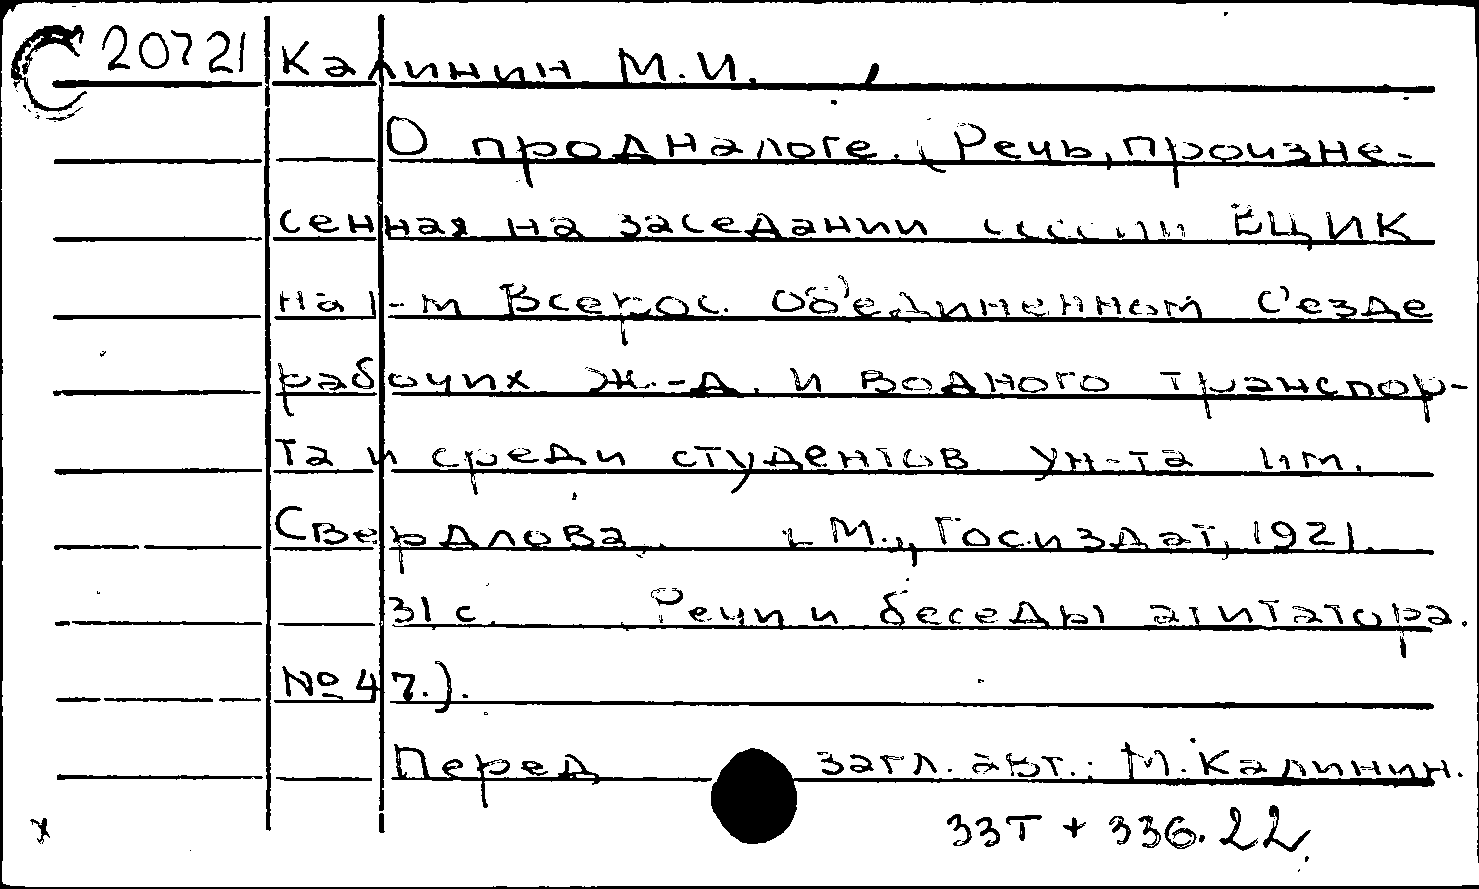 С 20721 Калинин М.И.
О продналоге. (Речь, произне-
сенная на заседании сессии ВЦИК
на 1-м Всерос. Об'единенном с'езде
рабочих ж.-д. и водного транспор-
та и среди студентов ун-та им.
Свердлова. М., Госиздат, 1921.
31 с. Речи и беседы агитатора.
№ 47.).
Перед загл. авт.: М. Калинин.
33Т + 336.22